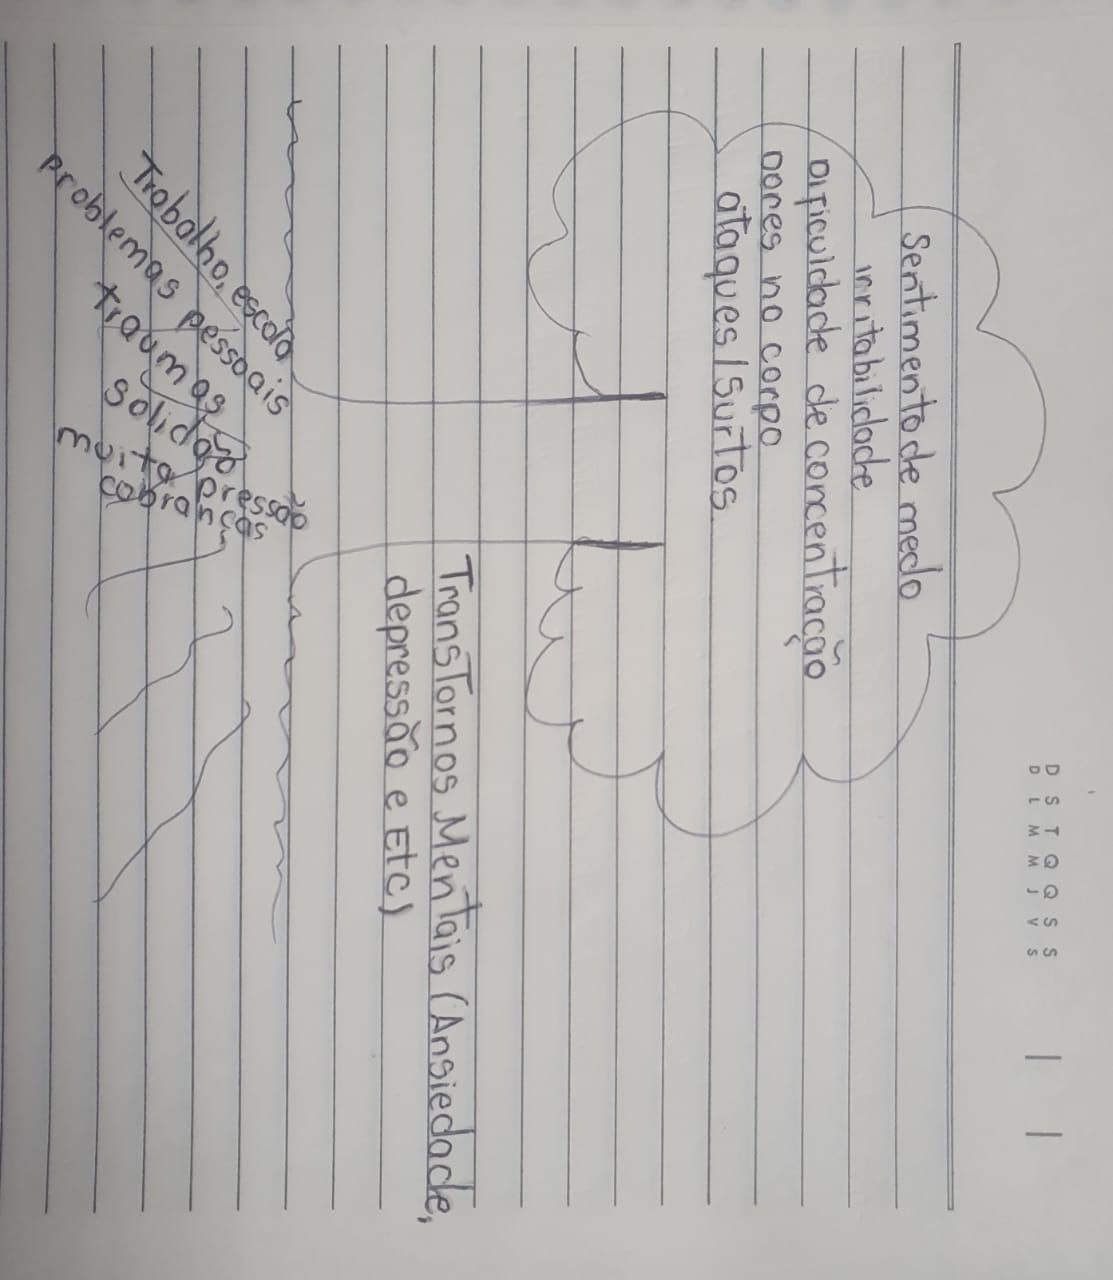 D S T Q Q S S
D L M M J V S
Sentimento de medo
irritabilidade
Dificuldade de concentração
Dores no corpo
ataques/Surtos.
TransTormos Mentais (Ansiedade,
depressão e Etc)
Trabalho, escola
problemas pessoais
traumas
Solidão
pressão